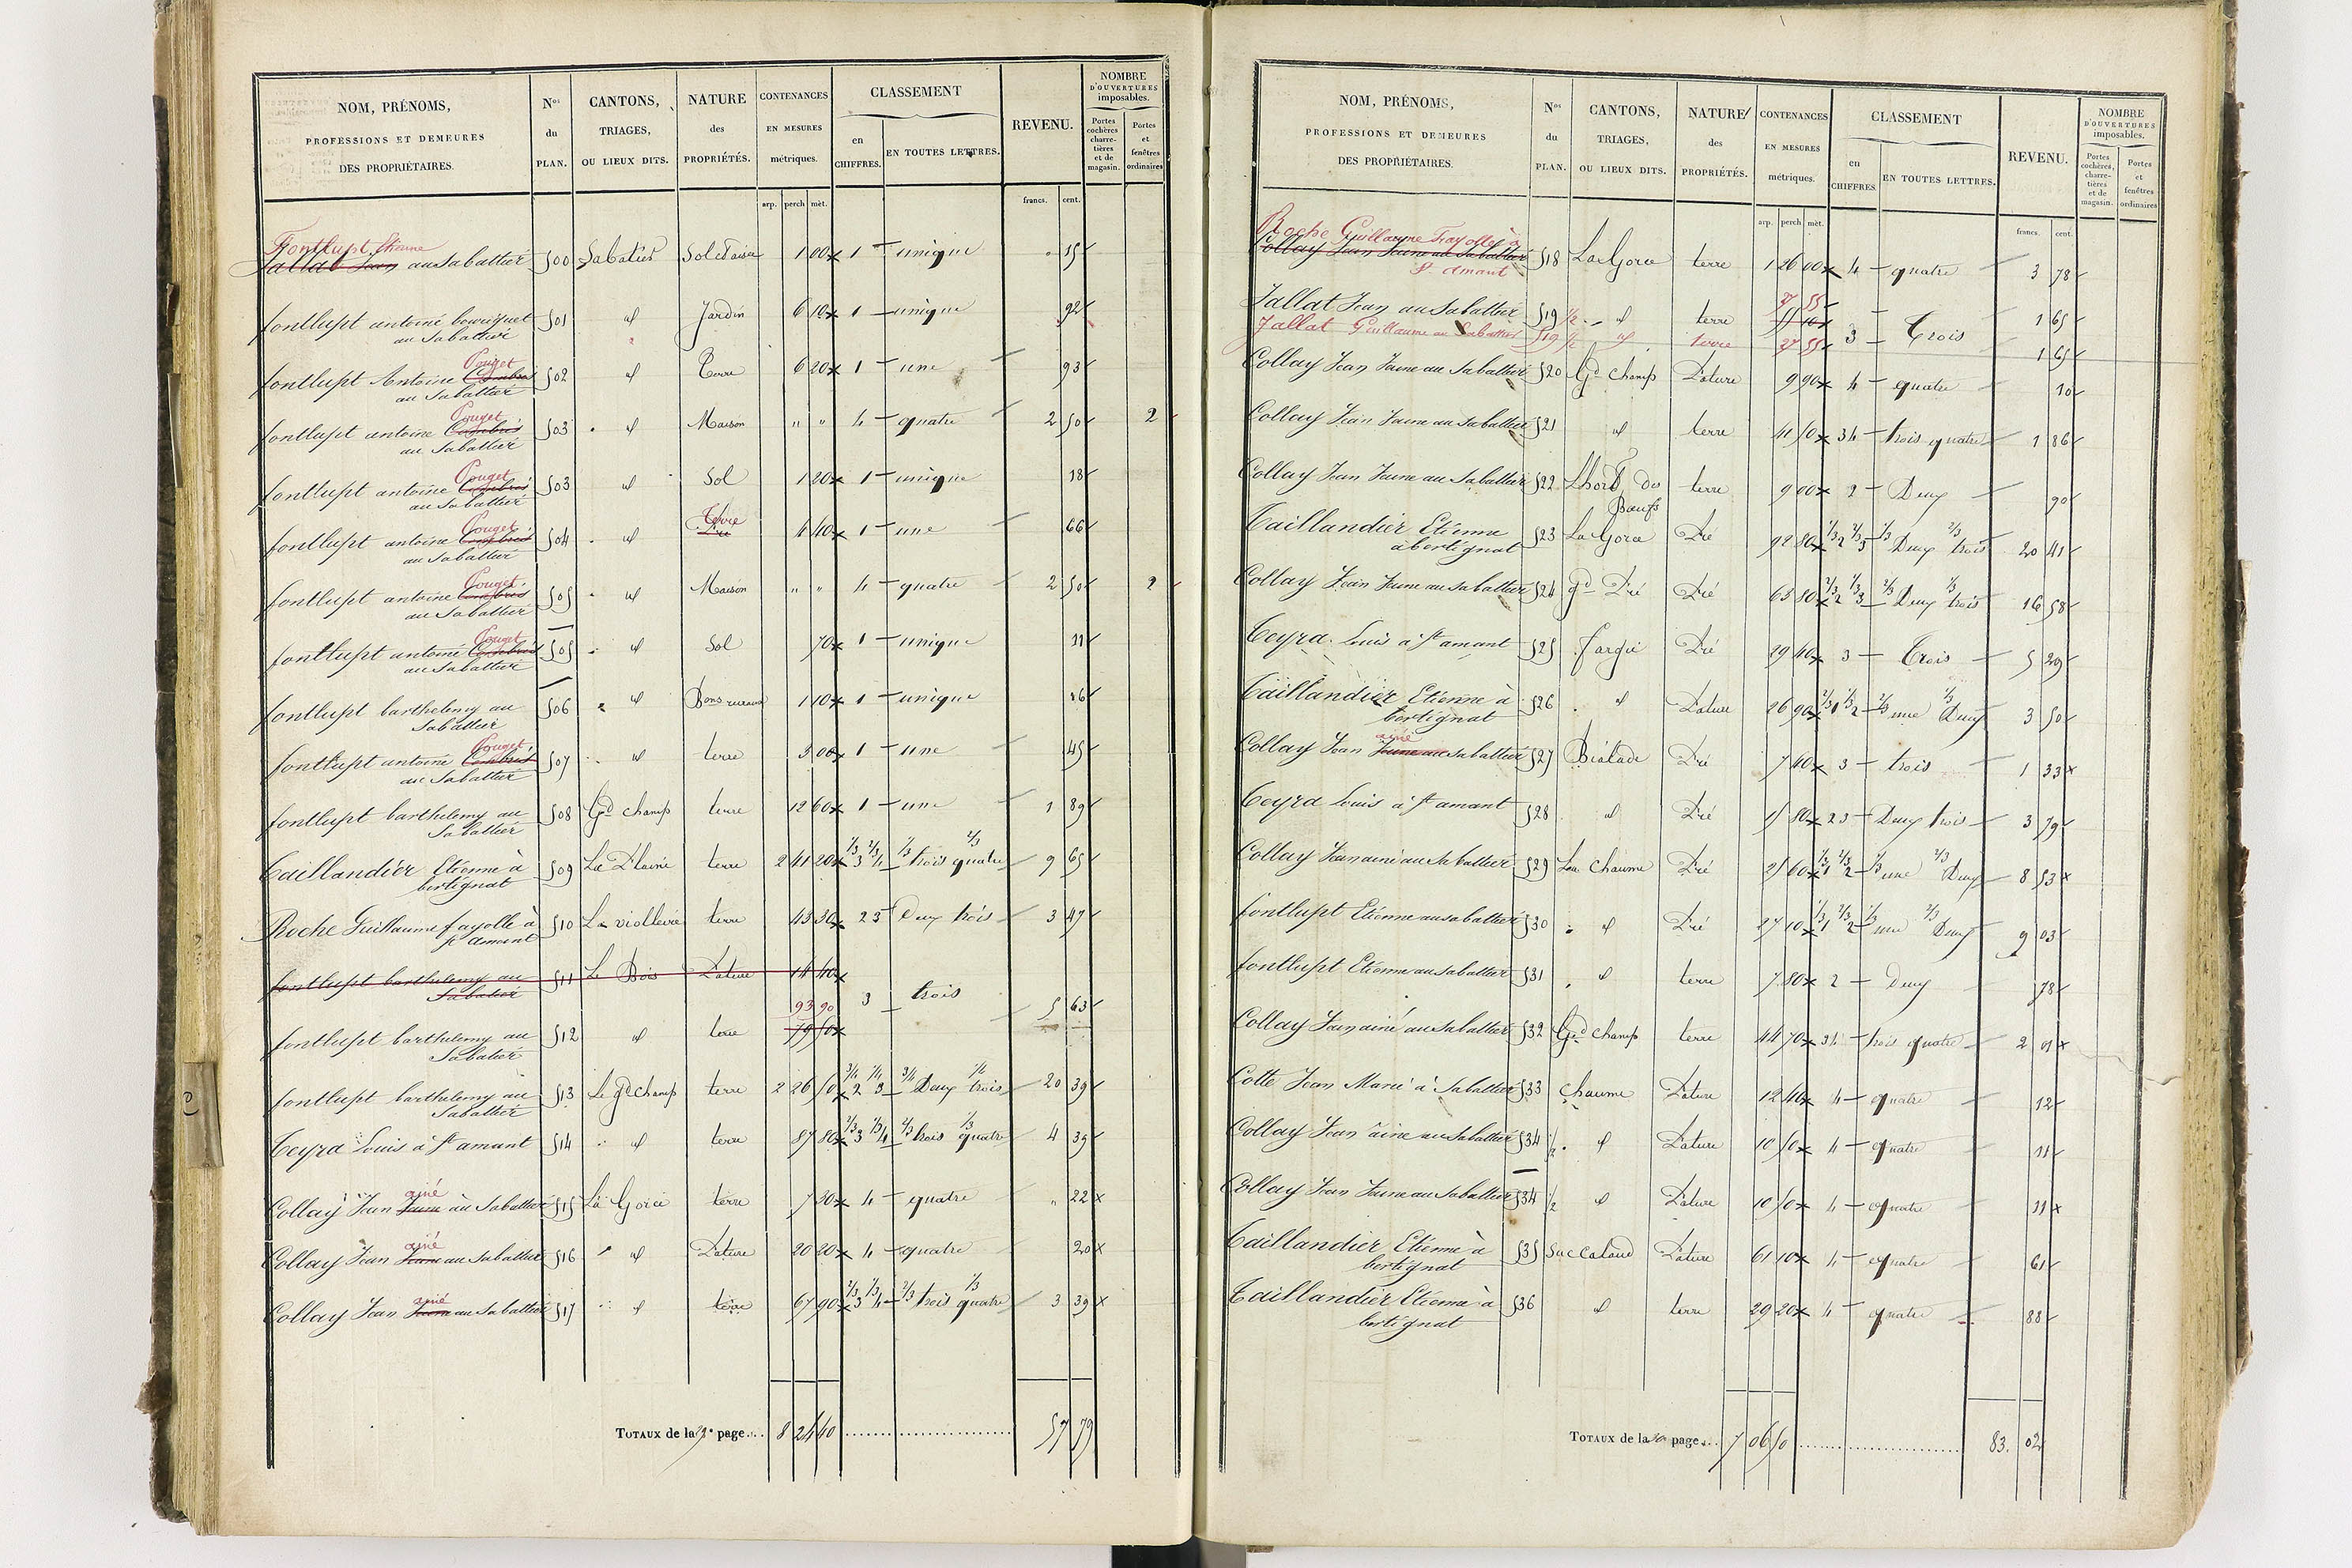 NOM, PRÉNOMS, PROFESSIONS ET DEMEURES DES PROPRIÉTAIRES. Nos du PLAN. CANTONS, TRIAGES, OU LIEUX DITS. NATURE des PROPRIÉTÉS. CONTENANCES EN MESURES métriques. CLASSEMENT en CHIFFRES. EN TOUTES LETTRES. REVENU. NOMBRE D'OUVERTURES imposables. Portes cochères, charretières et de magasin. Portes et fenêtres ordinaires
arp. perch mèt. francs. cent.
Fontlupt Etienne
Jallat Jean au Sabattier 500 Sabatier Sol et aisées 1 00 1 unique 15
fontlupt antoine bouriquet 501 id Jardin 6 10 1 unique 92
au Sabattier
Pouget
fontlupt Antoine Combris 502 id Terre 6 20 1 une 93
au Sabattier
Pouget
fontlupt antoine Combris 503 id Maison " " 4 quatre 2 50 2
au Sabattier
Pouget
fontlupt antoine Combris 503 id Sol 1 20 1 unique 18
au Sabattier
Pouget Terre
fontlupt antoine Combris 504 id Pré 4 40 1 une 66
au Sabattier
Pouget
fontlupt antoine Combris 505 id Maison " " 4 quatre 2 50 2
au Sabattier
Pouget
fontlupt antoine Combris 505 id Sol 70 1 unique 11
au Sabattier
fontlupt barthelemy au 506 id 1 10 1 unique 16
Sabattier
Pouget
fontlupt antoine Combris 507 id terre 3 00 1 une 45
au Sabattier
fontlupt barthelemy au 508 Gd champ terre 12 60 1 une 1 89
Sabattier
Taillandier Etienne à 509 La Plaine terre 2 41 20 1/3 3 2/3 4 1/3 trois 2/3 quatre 9 65
bertignat
Roche Guillaume fayolle à 510 La viollerie terre 43 30 2 3 Deux trois 3 47
St amant
fontlupt barthelemy au 511 Le Bois Pature 14 40
Sabatier
93 90 3 trois 5 63
fontlupt barthelemy au 512 id terre 79 50
Sabatier
fontlupt barthelemy au 513 Le gd champ terre 2 26 50 3/4 2 1/4 3 3/4 Deux 1/4 trois 20 39
Sabattier
Teyra Louis à St amant 514 id terre 87 80 2/3 3 1/3 4 2/3 trois 1/3 quatre 4 39
ainé
Collay Jean Jeune au Sabattier 515 La Gorce terre 7 30 4 quatre " 22
ainé
Collay Jean Jeune au Sabattier 516 id Pature 20 20 4 quatre 20
ainé
Collay Jean Jeune au Sabattier 517 id terre 67 90 2/3 3 1/3 4 2/3 trois 1/3 quatre 3 39
TOTAUX de la 29e page... 8 24 40 57 79
NOM, PRÉNOMS, PROFESSIONS ET DEMEURES DES PROPRIÉTAIRES. Nos du PLAN. CANTONS, TRIAGES, OU LIEUX DITS. NATURE des PROPRIÉTÉS. CONTENANCES EN MESURES métriques. CLASSEMENT en CHIFFRES. EN TOUTES LETTRES. REVENU. NOMBRE D'OUVERTURES imposables. Portes cochères, charretières et de magasin. Portes et fenêtres ordinaires
arp. perch mèt. francs. cent.
Roche Guillaume Fayolle à
Collay Jean Jeune au Sabattier 518 La Gorce terre 1 26 00 4 quatre 3 78
St amant
27 55
Jallat Jean au Sabattier 519 1/2 id terre 55 10 3 Trois 1 65
Jallat Guillaume au Sabattier 519 1/2 id terre 27 55 1 65
Collay Jean Jeune au Sabattier 520 Gd champ Pature 9 90 4 quatre 10
Collay Jean Jeune au Sabattier 521 id terre 41 50 3 4 trois quatre 1 86
Collay Jean Jeune au Sabattier 522 des Bœufs terre 9 00 2 Deux 90
Taillandier Etienne 523 La Gorce Pré 92 80 1/3 2 2/3 3 1/3 Deux 2/3 trois 20 41
à bertignat
Collay Jean Jeune au Sabattier 524 gd Pré Pré 63 80 2/3 2 1/3 3 2/3 Deux 1/3 trois 16 58
Teyra Louis à St amant 525 Pré 29 40 3 Trois 5 29
Taillandier Etienne à 526 id Pature 26 90 2/3 1 1/3 2 2/3 une 1/3 Deux 3 50
bertignat
ainé
Collay Jean Jeune au Sabattier 527 Bialade Pré 7 40 3 trois 1 33
Teyra Louis à St amant 528 id Pré 15 80 2 3 Deux trois 3 79
Collay Jean ainé au Sabattier 529 Chaume Pré 25 60 1/3 1 2/3 2 1/3 une 2/3 Deux 8 53
fontlupt Etienne au sabattier 530 id Pré 27 10 1/3 1 2/3 2 1/3 une 2/3 Deux 9 03
fontlupt Etienne au sabattier 531 id terre 7 80 2 Deux 78
Collay Jean ainé au Sabattier 532 Gd champ terre 44 70 3 4 trois quatre 2 01
Cotte Jean Marie à Sabattier 533 Chaume Pature 12 40 4 quatre 12
Collay Jean ainé au Sabattier 534 1/2 id Pature 10 50 4 quatre 11
Collay Jean Jeune au Sabattier 534 1/2 id Pature 10 50 4 quatre 11
Taillandier Etienne à 535 Pature 61 10 4 quatre 61
bertignat
Taillandier Etienne à 536 id terre 29 20 4 quatre 88
bertignat
TOTAUX de la 30e page... 7 06 50 83. 02